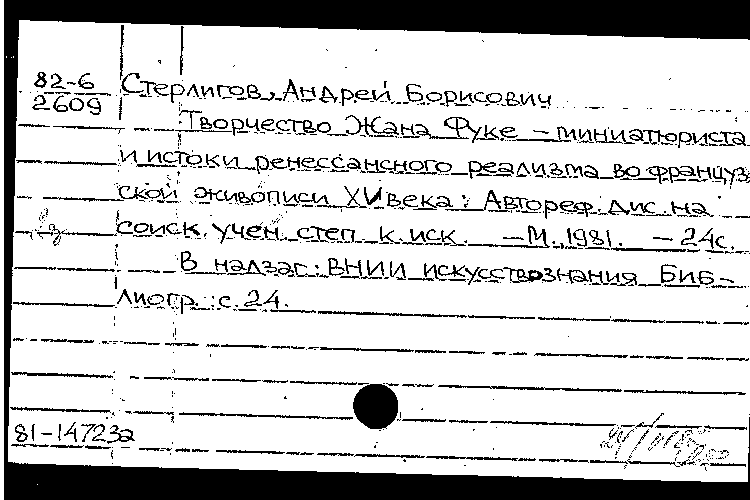 82-6
2609
Стерлигов, Андрей Борисович
Творчество Жана Фуке – миниатюриста
и истоки ренессансного реализма во француз-
ской живописи XV века : Автореф. дис. на
соиск. учен. степ. к. иск. – М., 1981. – 24с.
В надзаг.: ВНИИ искусствознания Биб-
лиогр.: с. 24.
81-14723а